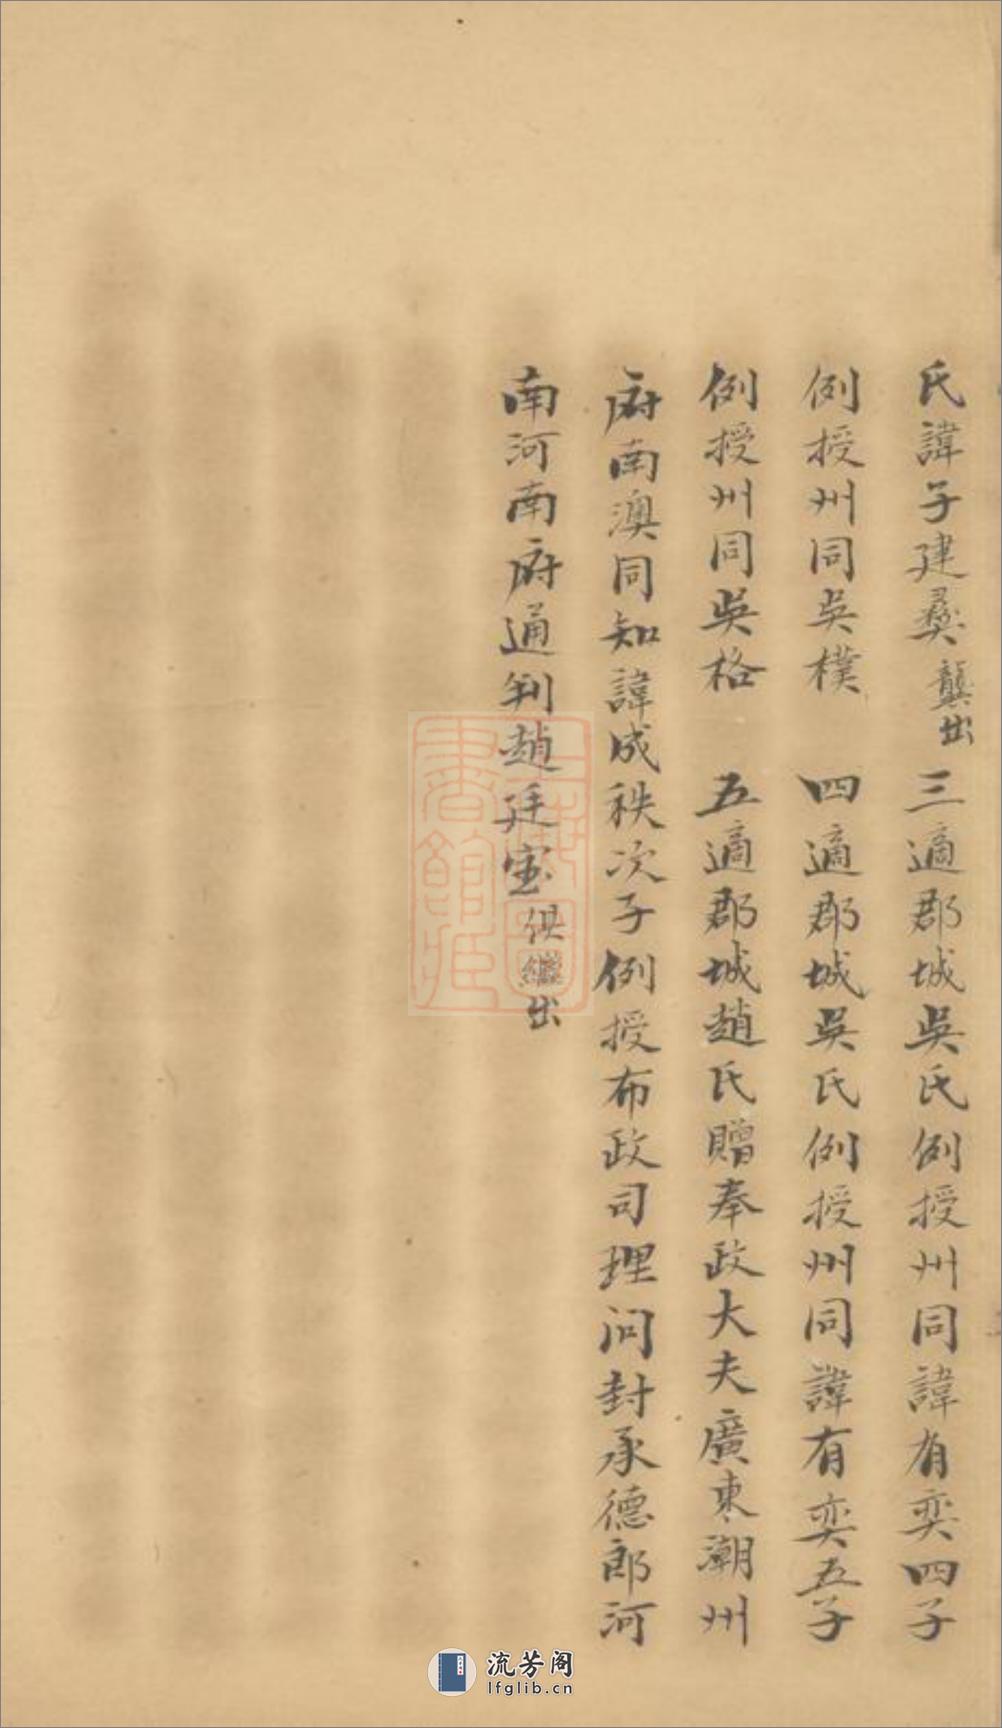 氏諱子建彝龔出 三適郡城吳氏例授州同諱有奕四子
例授州同吳樸 四適郡城吳氏例授州同諱有奕五子
例授州同吳格 五適郡城趙氏贈奉政大夫廣東潮州
府南澳同知諱成秩次子例授布政司理問封承德郎河
南河南府通判趙廷宝俱繼出
流芳阁
lfglib.cn